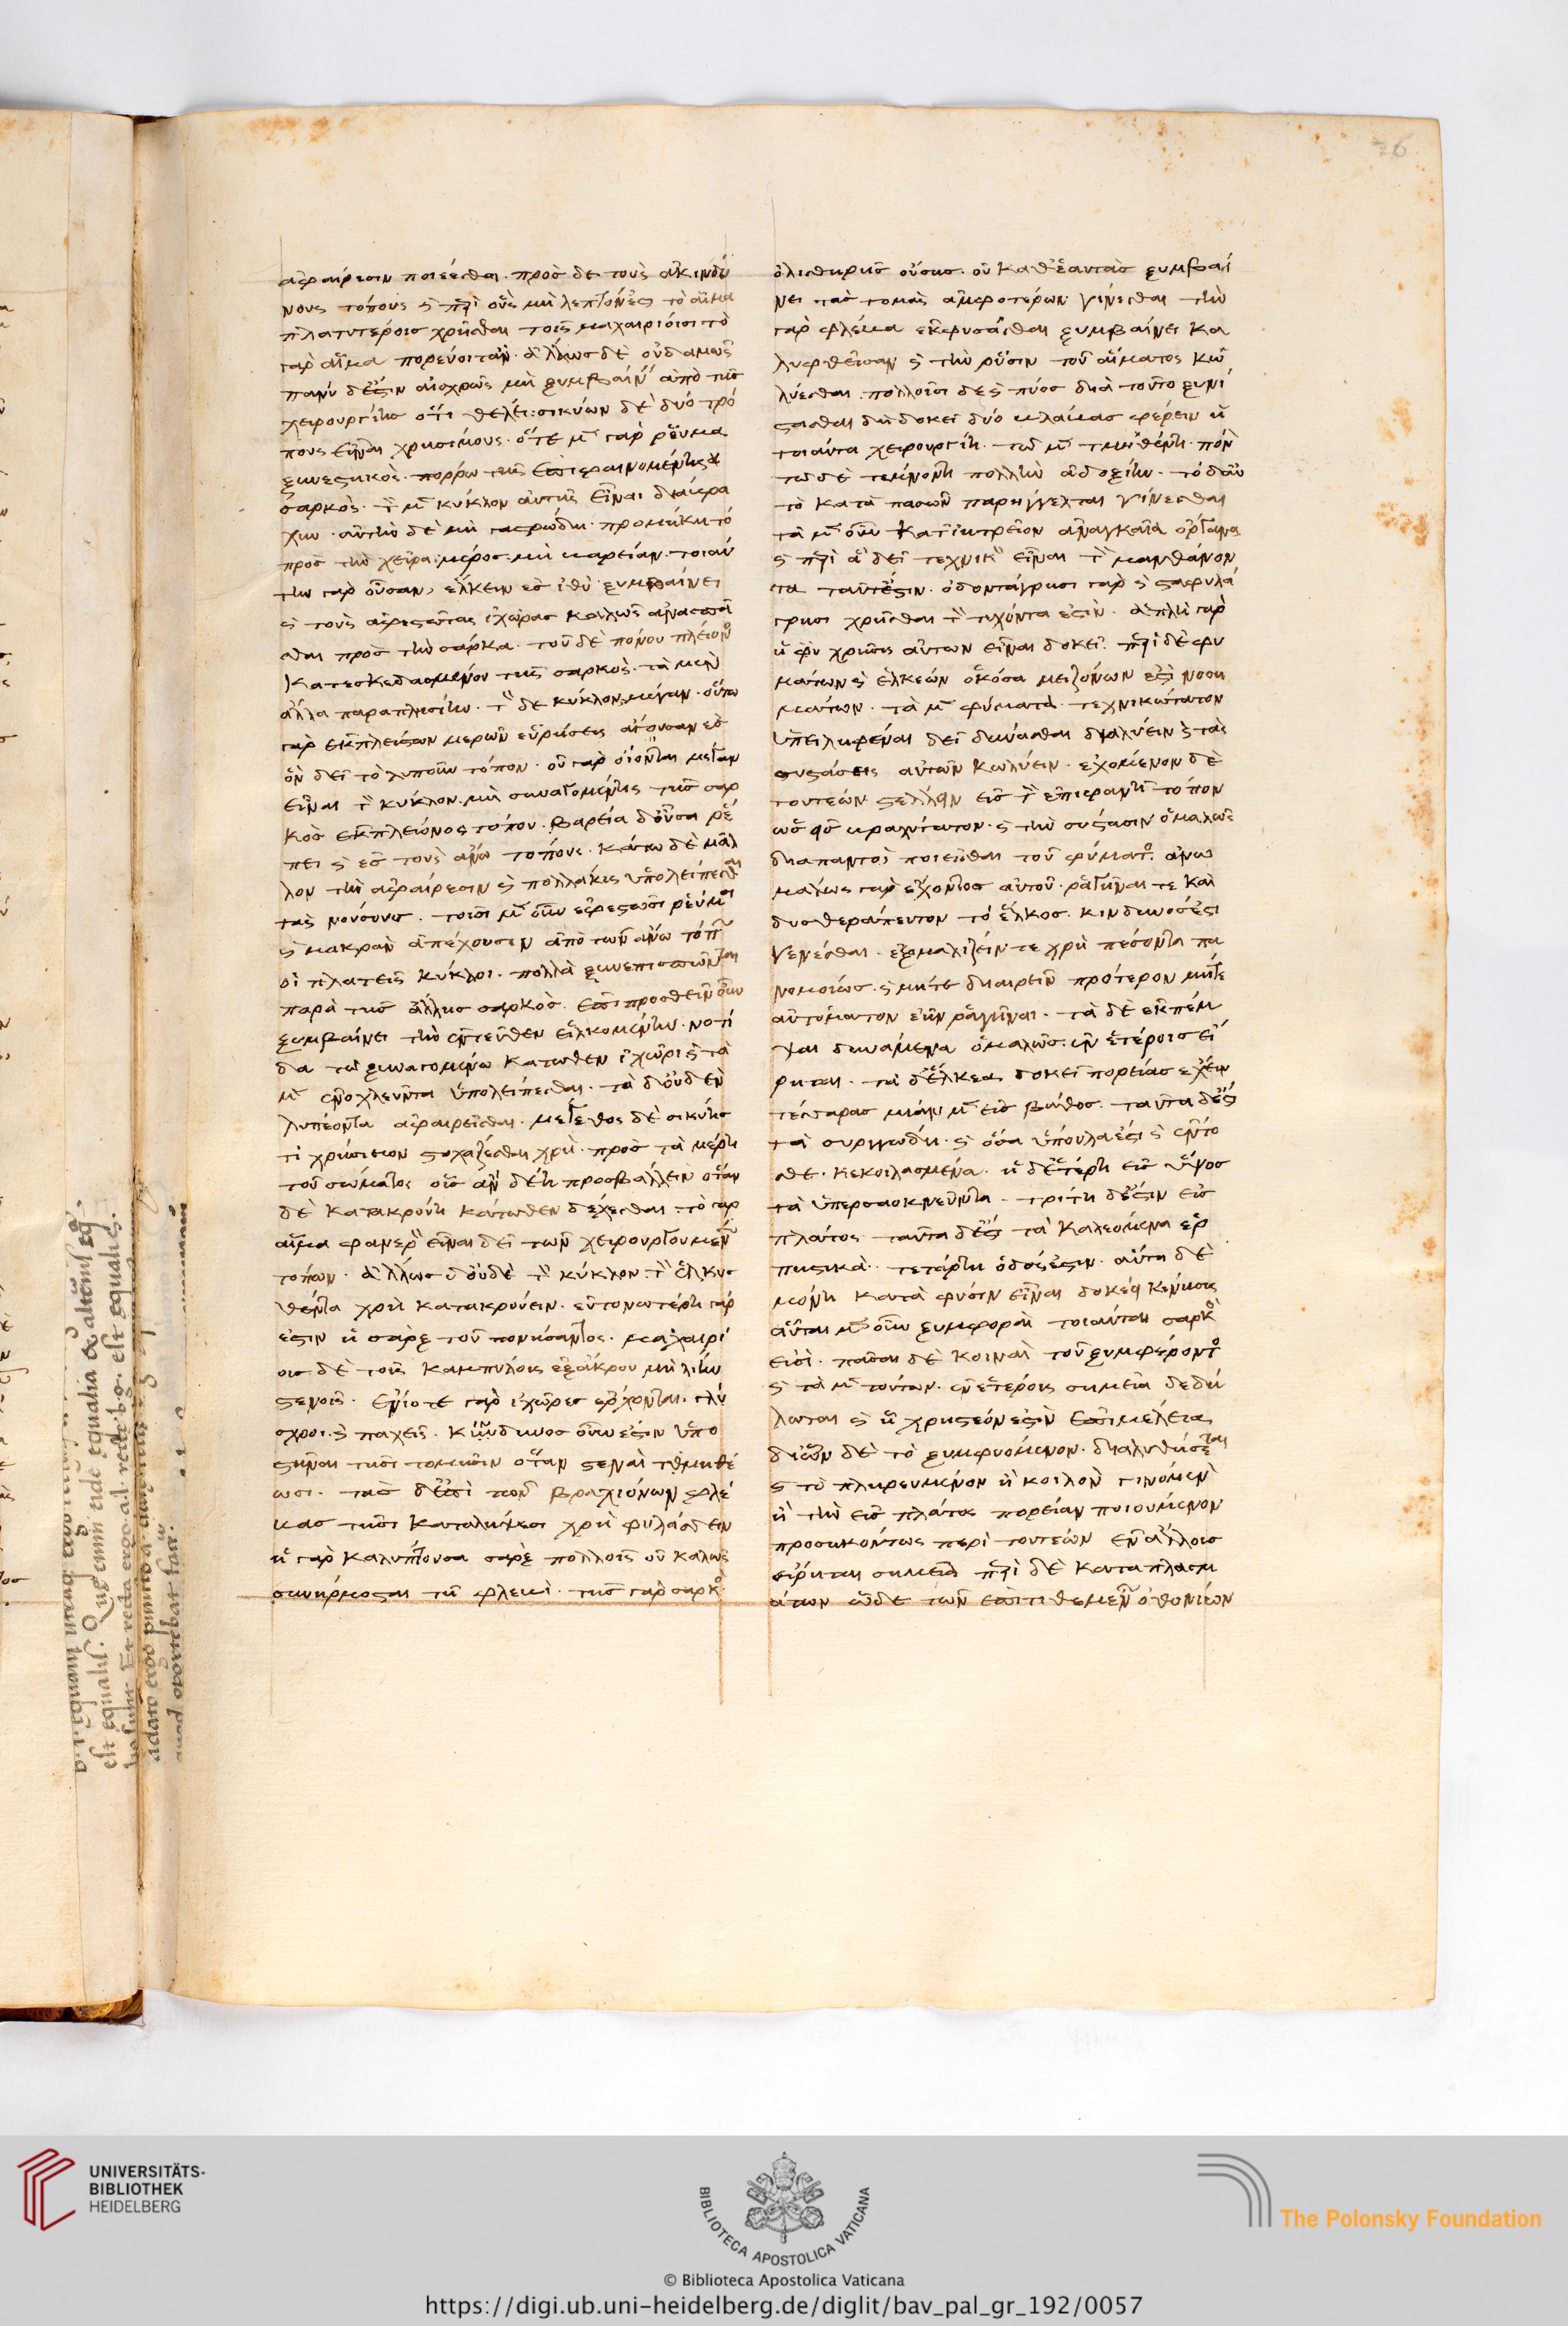 76
ἀφαίρεσιν ποιέεσθαι. πρὸς δε τοὺς ἀκινδύ
νους τόπους ϗ περὶ οὓς μὴ λεπτόν ἐς τὸ αἷμα
πλατυτέροισ χρῆσθαι τοῖς μαχαιρίοισι τὸ
γὰρ αἷμα πορεύοιτ ἀν. ἄλλως δὲ οὐδαμῶς
πανύ δέ ἐστιν αἰσχρῶς μὴ ξυμβαίν ἀπὸ τῆσ
χειρουργίησ ὅτι θέλει: σικύων δὲ δύο τρό
πους εἶναι χρησίμους. ὅτε μὲν γὰρ ῥεῦμα
ξυνεστηκὸς. πορρω τῆς ἐπιφαινομένης
σαρκὸς. τὸν μὲν κύκλον αὐτῆς εἶναι
χυν. αὐτὴν δὲ μὴ γαστρώδη. προμήκη τό
πρὸς τὴν χεῖρα μέρος. μὴ βαρείαν. τοιαύ
την γὰρ οὖσαν, ἕλκειν ἐσ ἰθὺ ξυμβαίνει
ϗ τοὺς ἀφεστῶτας ἰχῶρας καλῶς ἀνασπᾶ
σθαι πρὸς τὴν σάρκα. τοῦ δὲ πόνου πλέιονος
κατεσκεδασμένου τῆς σαρκὸς. τὰ μὲν
ἄλλα παραπλησίην. τὸν δε κύκλον, μέγαν. οὕτω
γὰρ ἐκ πλείστων μερῶν εὑρήσεις ἄγουσαν ἐς
ὃν δεῖ τὸ λυποῦν τόπον. οὐ γὰρ οἷόν ται μέγαν
εἶναι τὸν κύκλον μὴ συναγομένης τῆς σαρ
κὸς ἐκ πλείονος τόπου. βαρεία δ οὖσα ῥέ
πει ϗ ἐσ τοὺς ἄνω τόπους. κάτω δὲ μᾶλ
λον τὴν ἀφαίρεσιν ϗ πολλάκις ὑπολείπεσθαι
τὰς νούσους. τοισι μὲν οὖν ἐφεστῶσι ῥεύμασι
ϗ μακρὰν ἀπέχουσιν ἀπὸ τῶν ἄνω τόπων
οἱ πλατεῖς κύκλοι. πολλὰ ξυνεπισπῶνται
παρὰ τῆσ ἄλλησ σαρκὸς. ἐπιπροσθεῖν οὖν
ξυμβαίνει τὴν ἐντεῦθεν ἑλκομένην. νοτί
δα τῷ ξυναγομένω κάτωθεν ἰχῶρι ϗ τὰ
μὲν ἐνοχλεῦντα ὑπολείπεσθαι. τὰ δ οὐδὲν
λυπέοντα ἀφαιρεῖσθαι. μέγεθος δὲ σικύησ
τί χρήσιμον στοχάζεσθαι χρὴ. πρὸς τὰ μέρη
τοῦ σώματος οἷσ ἂν δέη προσβάλλειν ὅταν
δὲ κατακρούη κάτωθεν δέχεσθαι. τὸ γαρ
αἷμα φανερὸν εἶναι δεῖ τῶν χειρουργουμένων
τόπων. ἄλλως δ οὐδὲ τὸν κύκλον τὸν ἑλκυσ
θέντα χρὴ κατακρούειν. εὐτονωτέρη γάρ
ἐστιν ἡ σὰρξ τοῦ πονήσαντος. μαχαιρί
οισ δὲ τοῖς καμπύλοις ἐξ ἄκρου μὴ λίην
στενοῖς. ἐνίοτε γαρ ἰχῶρεσ ἔρχονται. γλί
σχροι. ϗ παχεῖς. κίνδυνοσ οὖν ἐστιν ὑπο
στῆναι τῇσι τομῇσιν ὅταν στεναὶ τμηθέ
ωσι. τὰσ δ ἐπὶ τῶν βραχιόνων φλέ
βας τῇσι καταλήψεσι χρὴ φυλάσσειν
ἡ γαρ καλύπτουσα σαρξ πολλοῖς οὐ καλῶς
συνήρμοσται τῇ φλεβὶ. τῆσ γαρ σαρκὸς
ὀλισθηρῆσ οὔσησ. οὐ καθ ἑαυτὰσ ξυμβαί
νει τασ τομὰς ἀμφοτέρων γίνεσθαι τὴν
γαρ φλέβα ἐκφυσᾶσθαι ξυμβαίνει κα
λυφθεῖσαν ϗ τὴν ῥύσιν τοῦ αἵματος κω
λύεσθαι. πολλοῖσι δε ϗ πύοσ διὰ τοῦτο ξυνί
στασθαι δὴ δοκεῖ δύο βλάβασ φέρειν ἡ
τοιαύτη χειρουργίη. τῷ μὲν τμηθέντι. πόν
τῷ δὲ τέμνοντι πολλὴν ἀδοξίην. τό δ αὖ
τὸ κατὰ πασῶν παρήγγελται γίνεσθαι
τὰ μὲν οὖν κατ ἰητρεῖον ἀναγκαῖα ὄργανα
ϗ περὶ ἃ δεῖ τεχνικὸν εἶναι τὸν μανθάνον
τα ταῦτ ἐστιν. ὀδοντάγρησι γαρ ϗ σταφυλά
γρησι χρῆσθαι τὸν τυχόντα ἐστιν. ἁπλῆ γαρ
ἡ χρῆσις αὐτων εἶναι δοκεῖ. περὶ δὲ φυ
μάτων ϗ ἑλκεών ὁκόσα μειζόνων ἐστὶ νοση
μάτων. τὰ μὲν φύματα. τεχνικώτατον
ὑπειληφέναι δεῖ δύνασθαι διαλύειν ϗ τὰς
συστάσεις αὐτῶν κωλύειν. ἐχόμενον δὲ
τουτέων στέλλειν εἰσ τὸν ἐπιφανῆ τόπον
ὡσ βραχύτατον. ϗ τὴν σύστασιν ὁμαλῶς
διαπαντὸς ποιεῖσθαι τοῦ φύματος. ἀνω
μάλως γαρ ἔχοντοσ αὐτοῦ. ῥαγῆναι τε καὶ
δυσθεράπευτον τό ἕλκοσ. κινδυνοσ ἐστι
γενέσθαι. ἐξομαλίζειν τε χρὴ πέσοντα πα
νομοίωσ. ϗ μήτε διαιρεῖν πρότερον μήτε
αὐτόματον ἐῆν ῥαγῆναι. τὰ δὲ ἐκπέμ
ψαι δυνάμενα ὁμαλῶσ. ἐν ἑτέροισ εἴ
ρηται. τὰ δ ἕλκεα δοκεῖ πορείασ ἔχειν
τέσσαρασ μίαν μὲν εἰσ βάθοσ. ταῦτα δ ἐστ
τὰ συριγγώδη. ϗ ὅσα ὕπουλα ἐστι ϗ ἐντο
σθε. κεκοιλασμένα. ἡ δ ἑτέρη εἰσ ὕψοσ
τὰ ὑπερσαρκνεῦντα. τρίτη δ ἐστιν εἰσ
πλάτοσ ταῦτα δ ἐστι τὰ καλεόμενα ἑρ
πηστικά. τετάρτη ὁδόσ ἐστιν. αὕτη δὲ
μούνη κατὰ φύσιν εἶναι δοκέει κίνησις
αὗται μὲν οὖν ξυμφοραὶ τοιαῦται σαρκὸς
εἰσὶ. πᾶσαι δὲ κοιναὶ τοῦ ξυμφέροντος
ϗ τὰ μὲν τούτων. ἐν ἑτέροις σημεῖα δεδή
λωται ϗ ἧ χρηστεόν ἐστὶν ἐπιμέλεια
δι ὧν δὲ τὸ ξυμφυόμενον. διαλυθήσεται
ϗ τὸ πληρευμένον ἢ κοιλὸν γινόμενον
ἢ τὴν εἰσ πλάτοσ πορείαν ποιουμενον
προσηκόντως περὶ τουτεών ἐν ἄλλοισ
εἴρηται σημεῖα περὶ δὲ καταπλασμ
άτων ὧδε τῶν ἐπιτιθεμένων ὀθονίων
est equalis. Quę enim eidē equalia
UNIVERSITÄTS-
BIBLIOTHEK
HEIDELBERG
BIBLIOTECA APOSTOLICA VATICANA
© Biblioteca Apostolica Vaticana
The Polonsky Foundation
https://digi.ub.uni-heidelberg.de/diglit/bav_pal_gr_192/0057